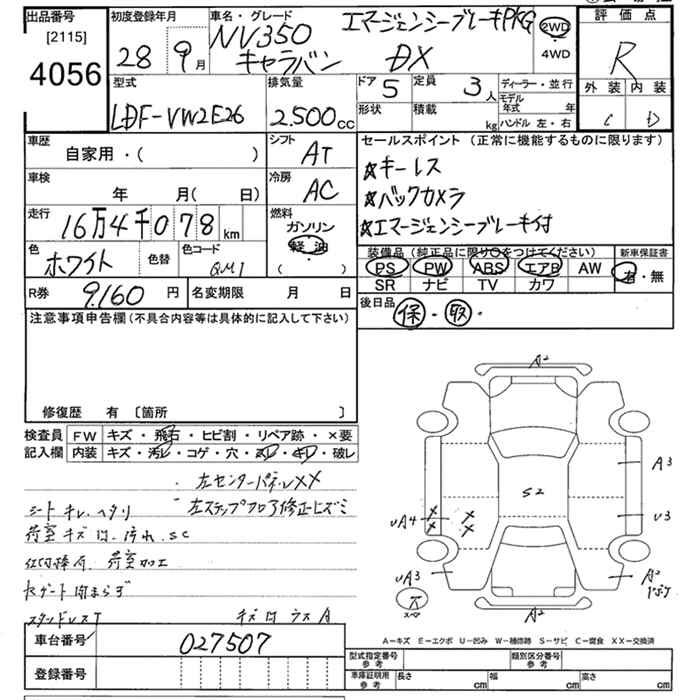 出品番号
[2115]
4056
初度登録年月
28 9月
車名・グレード
NV350 キャラバン
エマージェンシーブレーキPKG
DX
2WD
4WD
評価点
R
外装 内装
C D
型式
LDF-VW2E26
排気量
2.500cc
ドア 5
定員 3人
形状
積載 kg
ディーラー・並行
モデル年式 年
ハンドル 左・右
車歴
自家用・( )
シフト
AT
車検
年 月( 日)
冷房
AC
走行
16万4千078km
燃料
ガソリン
軽油
( )
色
ホワイト
色替
色コード
QM1
R券 9,160円
名変期限 月 日
セールスポイント(正常に機能するものに限ります)
☆キーレス
☆バックカメラ
☆エマージェンシーブレーキ付
装備品(純正品に限り○をつけてください)
PS PW ABS エアB AW
SR ナビ TV カワ
新車保証書
有・無
後日品
保・取・
注意事項申告欄(不具合内容等は具体的に記入して下さい)
修復歴 有〔箇所 〕
検査員記入欄
FW キズ・飛石・ヒビ割・リペア跡・×要
内装 キズ・汚レ・コゲ・穴・スレ・キレ・破レ
左センターパネルXX
シートキレ、ヘタリ
左ステップフロア修正ヒズミ
荷室キズ凹、汚れ、SC
荷室加工
A2
A3
S2
U3
UA4
UA3
A2
A2
A=キズ E=エクボ U=凹み W=補修跡 S=サビ C=腐食 XX=交換済
車台番号
027507
登録番号
型式指定番号
参考
類別区分番号
参考
車庫証明用
参考
長さ cm
幅 cm
高さ cm